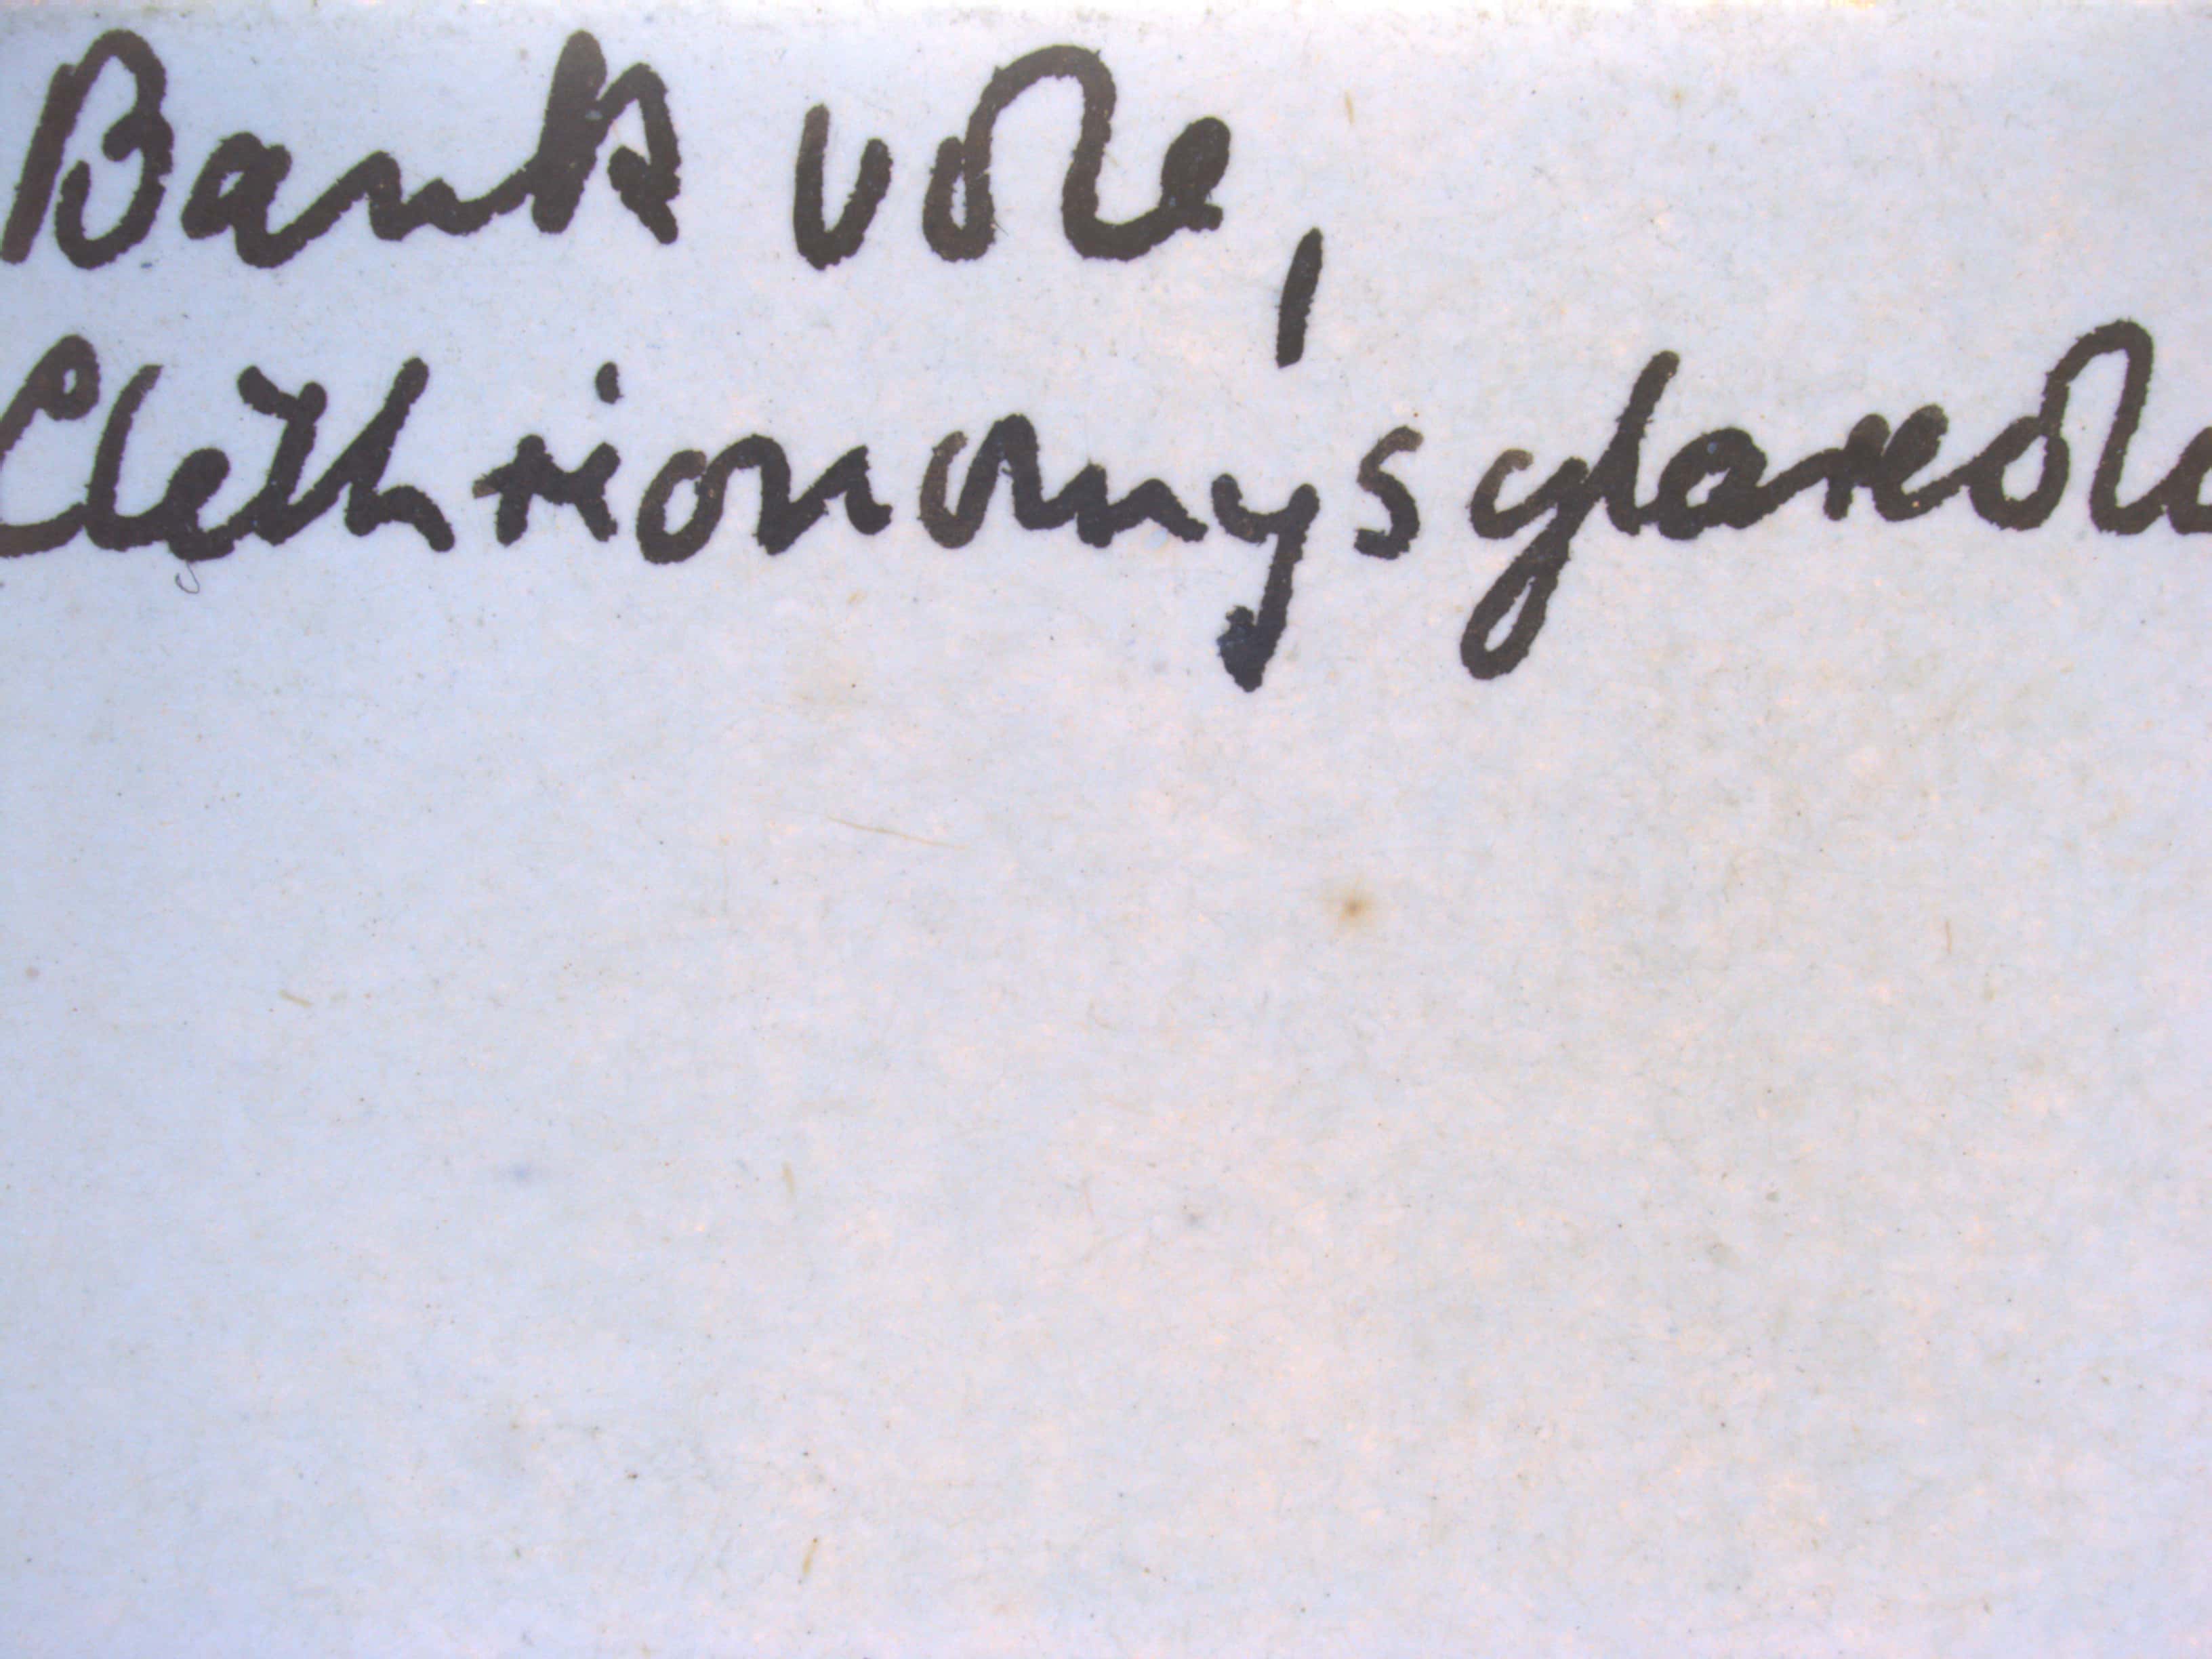 Bank vole,
Clethrionomys glareolu